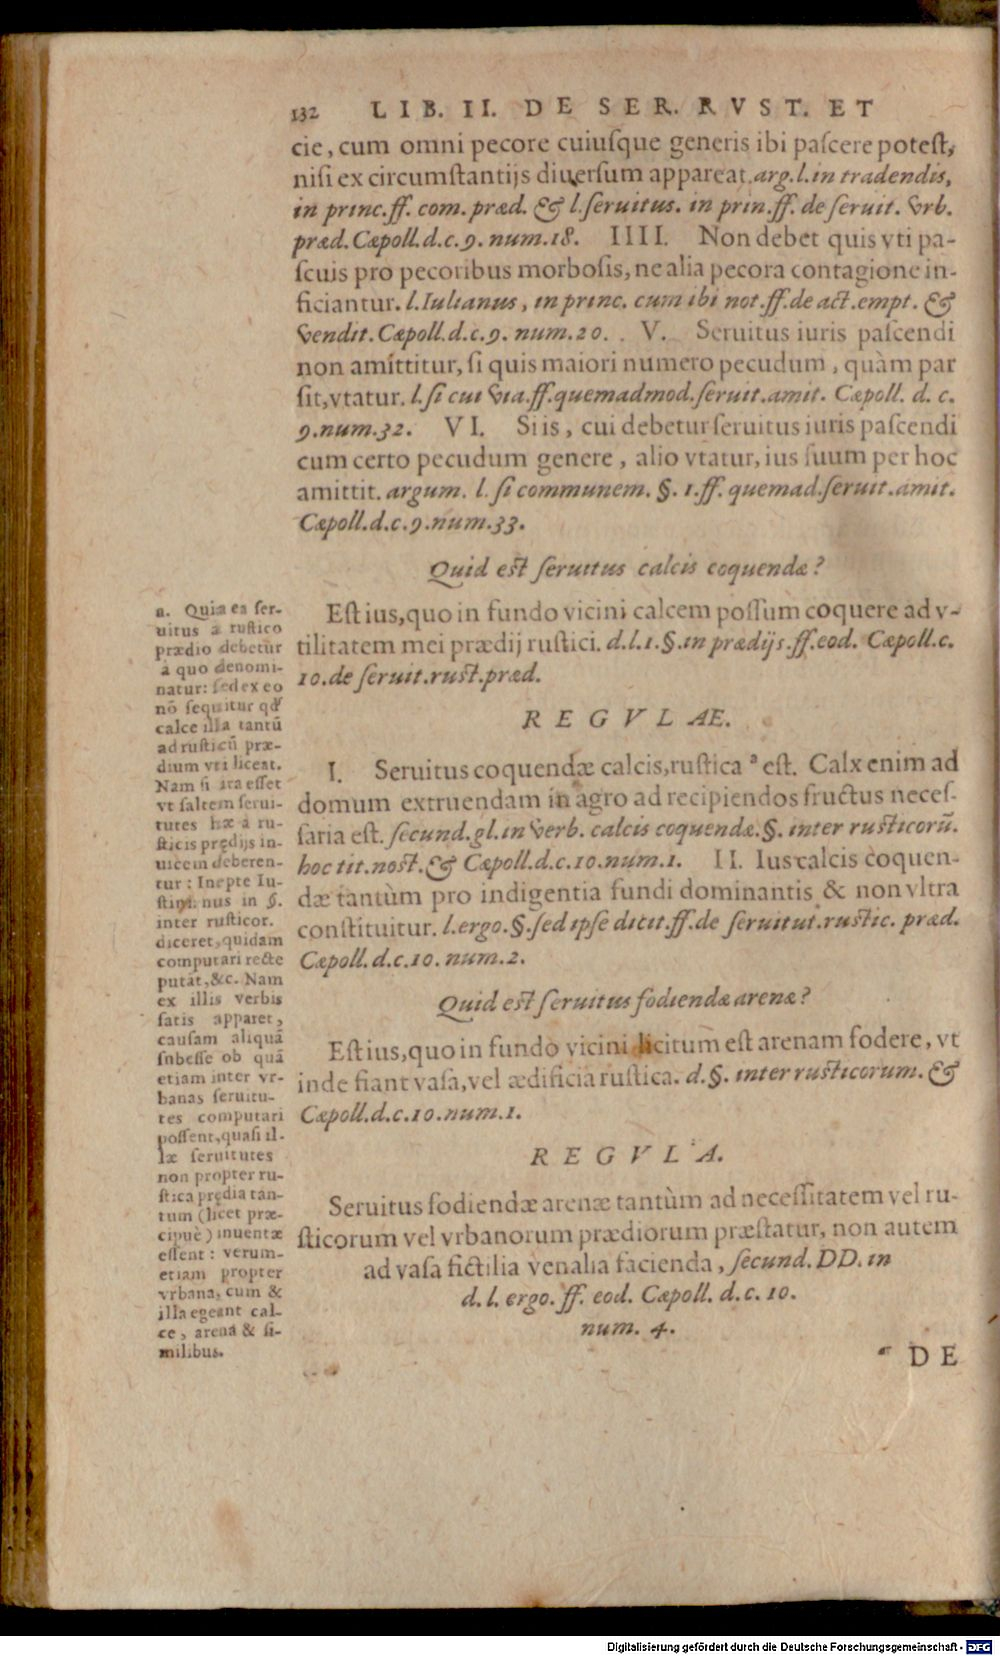 132 LIB. II. DE SER. RVST. ET
cie, cum omni pecore cuiuſque generis ibi paſcere poteſt,
niſi ex circumſtantijs diuerſum appareat. arg. l. in tradendis,
in princ. ff. com. præd. & l. ſeruitus. in prin. ff. de ſeruit. vrb.
præd. Cæpoll. d. c. 9. num. 18. IIII. Non debet quis vti pa-
ſcuis pro pecoribus morboſis, ne alia pecora contagione in-
ficiantur. l. Iulianus, in princ. cum ibi not. ff. de act. empt. &
vendit. Cæpoll. d. c. 9. num. 20. V. Seruitus iuris paſcendi
non amittitur, ſi quis maiori numero pecudum, quàm par
ſit, vtatur. l. ſi cui via. ff. quemadmod. ſeruit. amit. Cæpoll. d. c.
9. num. 32. VI. Si is, cui debetur ſeruitus iuris paſcendi
cum certo pecudum genere, alio vtatur, ius ſuum per hoc
amittit. argum. l. ſi communem. §. 1. ff. quemad. ſeruit. amit.
Cæpoll. d. c. 9. num. 33.
Quid eſt ſeruitus calcis coquendæ?
Eſt ius, quo in fundo vicini calcem poſſum coquere ad v-
tilitatem mei prædij ruſtici. d. l. 1. §. in prædijs. ff. eod. Cæpoll. c.
10. de ſeruit. ruſt. præd.
REGVLÆ.
I. Seruitus coquendæ calcis, ruſtica ᵃ eſt. Calx enim ad
domum extruendam in agro ad recipiendos fructus neceſ-
ſaria eſt. ſecund. gl. in verb. calcis coquendæ. §. inter ruſticorū.
hoc tit. noſt. & Cæpoll. d. c. 10. num. 1. II. Ius calcis coquen-
dæ tantùm pro indigentia fundi dominantis & non vltra
conſtituitur. l. ergo. §. ſed ipſe dicit. ff. de ſeruitut. ruſtic. præd.
Cæpoll. d. c. 10. num. 2.
Quid eſt ſeruitus fodiendæ arenæ?
Eſt ius, quo in fundo vicini licitum eſt arenam fodere, vt
inde fiant vaſa, vel ædificia ruſtica. d. §. inter ruſticorum. &
Cæpoll. d. c. 10. num. 1.
REGVLA.
Seruitus fodiendæ arenæ tantùm ad neceſſitatem vel ru-
ſticorum vel vrbanorum prædiorum præſtatur, non autem
ad vaſa fictilia venalia facienda, ſecund. DD. in
d. l. ergo. ff. eod. Cæpoll. d. c. 10.
num. 4.
DE
a. Quia ea ſer-
uitus a ruſtico
prædio debetur
à quo denomi-
natur: ſed ex eo
nō ſequitur qđ
calce illa tantū
ad ruſticū præ-
dium vti liceat.
Nam ſi ita eſſet
vt ſaltem ſerui-
tutes hæ à ru-
ſticis prędijs in-
uicem deberen-
tur: Inepte Iu-
ſtinianus in §.
inter ruſticor.
diceret, quidam
computari recte
putāt, &c. Nam
ex illis verbis
ſatis apparet,
cauſam aliquā
ſubeſſe ob quā
etiam inter vr-
banas ſeruitu-
tes computari
poſſent, quaſi il-
læ ſeruitutes
non propter ru-
ſtica prędia tan-
tum (licet præ-
cipuè) inuentæ
eſſent: verum-
etiam propter
vrbana, cum &
illa egeant cal-
ce, arena & ſi-
milibus.
Digitalisierung gefördert durch die Deutsche Forschungsgemeinschaft - DFG